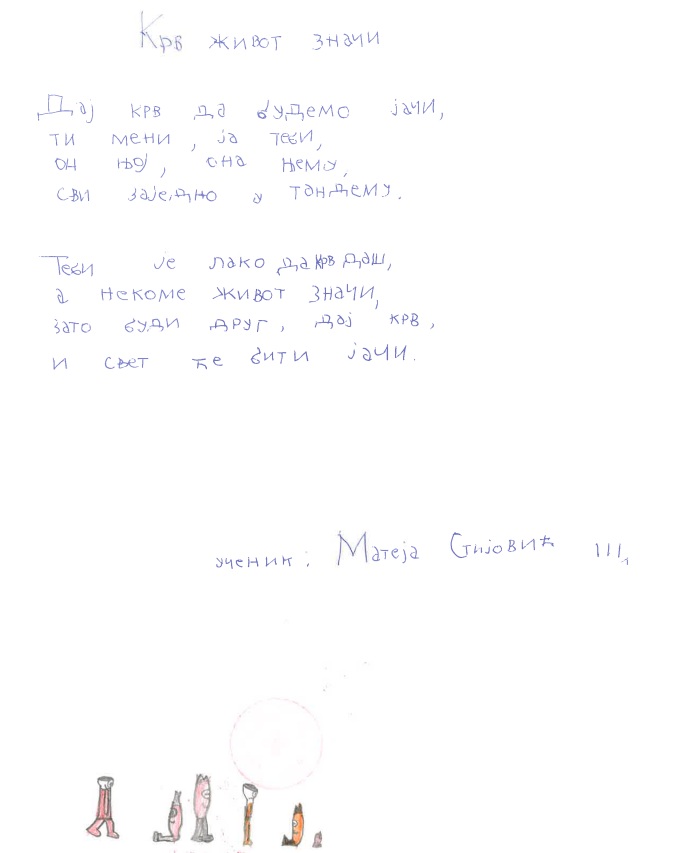 Крв живот значи
Дај крв да будемо јачи,
ти мени, ја теби,
он њој, она њему,
сви заједно у тандему.
Теби је лако да крв даш,
а некоме живот значи,
зато буди друг, дај крв,
и свет ће бити јачи.
ученик: Матеја Стијовић III₁